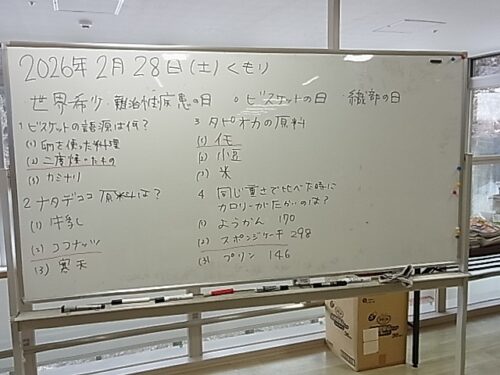 2026年2月28日(土)くもり
・世界希少・難治性疾患の日 ○ビスケットの日 ・織部の日
1 ビスケットの語源は何?
(1) 卵を使った料理
(2) 二度焼いたもの
(3) カミナリ
2 ナタデココ原料は?
(1) 牛乳
(2) ココナッツ
(3) 寒天
3 タピオカの原料
(1) イモ
(2) 小豆
(3) 米
4 同じ重さで比べた時に
カロリーがたかいのは?
(1) ようかん 170
(2) スポンジケーキ 298
(3) プリン 146